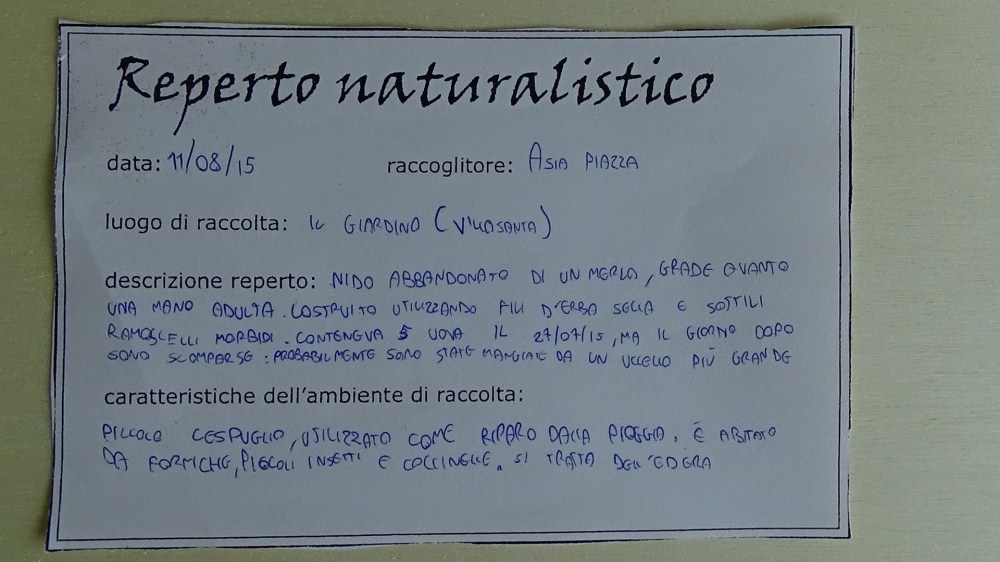 Reperto naturalistico
data: 11/08/15 raccoglitore: ASIA PIAZZA
luogo di raccolta: IL GIARDINO (VILLASANTA)
descrizione reperto: NIDO ABBANDONATO DI UN MERLO, GRADE QUANTO
UNA MANO ADULTA. COSTRUITO UTILIZZANDO FILI D'ERBA SECCA E SOTTILI
RAMOSCELLI MORBIDI. CONTENEVA 5 UOVA IL 27/07/15, MA IL GIORNO DOPO
SONO SCOMPARSE: PROBABILMENTE SONO STATE MANGIATE DA UN UCCELLO PIÙ GRANDE
caratteristiche dell'ambiente di raccolta:
PICCOLO CESPUGLIO, UTILIZZATO COME RIPARO DALLA PIOGGIA. È ABITATO
DA FORMICHE, PICCOLI INSETTI E COCCINELLE. SI TRATTA DELL'EDERA